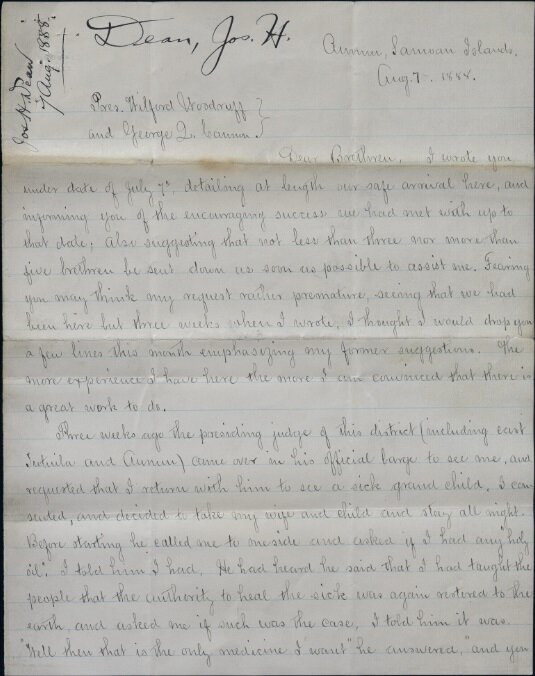 Jos H Dean
7 Aug. 1888.
Dean, Jos. H.
Aunuu, Samoan Islands.
Aug. 7th 1888.
Pres. Wilford Woodruff }
and George Q. Cannon. }
Dear Brethren, I wrote you
under date of July 7th, detailing at length our safe arrival here, and
informing you of the encouraging success we had met with up to
that date; Also suggesting that not less than three nor more than
five brethren be sent down as soon as possible to assist me. Fearing
you may think my request rather premature, seeing that we had
been here but three weeks when I wrote, I thought I would drop you
a few lines this month emphasizing my former suggestions. The
more experience I have here the more I am convinced that there is
a great work to do.
Three weeks ago the presiding judge of this district (including east
Tutuila and Aunuu) came over in his official barge to see me, and
requested that I return with him to see a sick grand child. I con-
sented, and decided to take my wife and child and stay all night.
Before starting he called me to one side and asked if I had any "holy
oil". I told him I had. He had heard he said that I had taught the
people that the authority to heal the sick was again restored to the
earth, and asked me if such was the case, I told him it was.
"Well then that is the only medicine I want" he answered, "and you